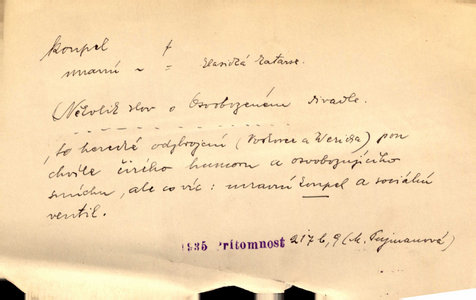 koupel f
mravní ~ = klasická katarse.
(Několik slov o Osvobozeném divadle.
, to herecké odzbrojení (Voskovce a Wericha) pou
chvíle čirého humoru a osvobozujícího
smíchu, ale co víc: mravní koupel a sociální
ventil.
1935 Přítomnost 217 b, 9 (M. Pujmanová)